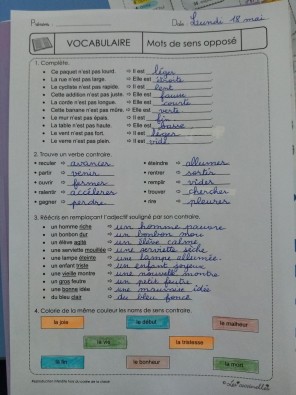 Prénom : Date : Lundi 18 mai
VOCABULAIRE Mots de sens opposé
1. Complète.
• Ce paquet n'est pas lourd. ⇨ Il est léger
• La rue n'est pas large. ⇨ Elle est étroite
• Le cycliste n'est pas rapide. ⇨ Il est lent
• Cette addition n'est pas juste. ⇨ Elle est fausse
• La corde n'est pas longue. ⇨ Elle est courte
• Cette banane n'est pas mûre. ⇨ Elle est verte
• Le mur n'est pas épais. ⇨ Il est fin
• La table n'est pas haute. ⇨ Elle est basse
• Le vent n'est pas fort. ⇨ Il est léger
• Le verre n'est pas plein. ⇨ Il est vide
2. Trouve un verbe contraire.
• reculer ⇨ avancer • éteindre ⇨ allumer
• partir ⇨ venir • rentrer ⇨ sortir
• ouvrir ⇨ fermer • remplir ⇨ vider
• ralentir ⇨ accélérer • trouver ⇨ chercher
• gagner ⇨ perdre • rire ⇨ pleurer
3. Réécris en remplaçant l'adjectif souligné par son contraire.
• un homme riche ⇨ un homme pauvre
• un bonbon dur ⇨ un bonbon mou
• un élève agité ⇨ un élève calme
• une serviette mouillée ⇨ une serviette sèche
• une lampe éteinte ⇨ une lampe allumée
• un enfant triste ⇨ un enfant joyeux
• une vieille montre ⇨ une nouvelle montre
• un gros feutre ⇨ un petit feutre
• une bonne idée ⇨ une mauvaise idée
• du bleu clair ⇨ du bleu foncé
4. Colorie de la même couleur les noms de sens contraire.
la joie le début le malheur
la vie la tristesse
la fin le bonheur la mort